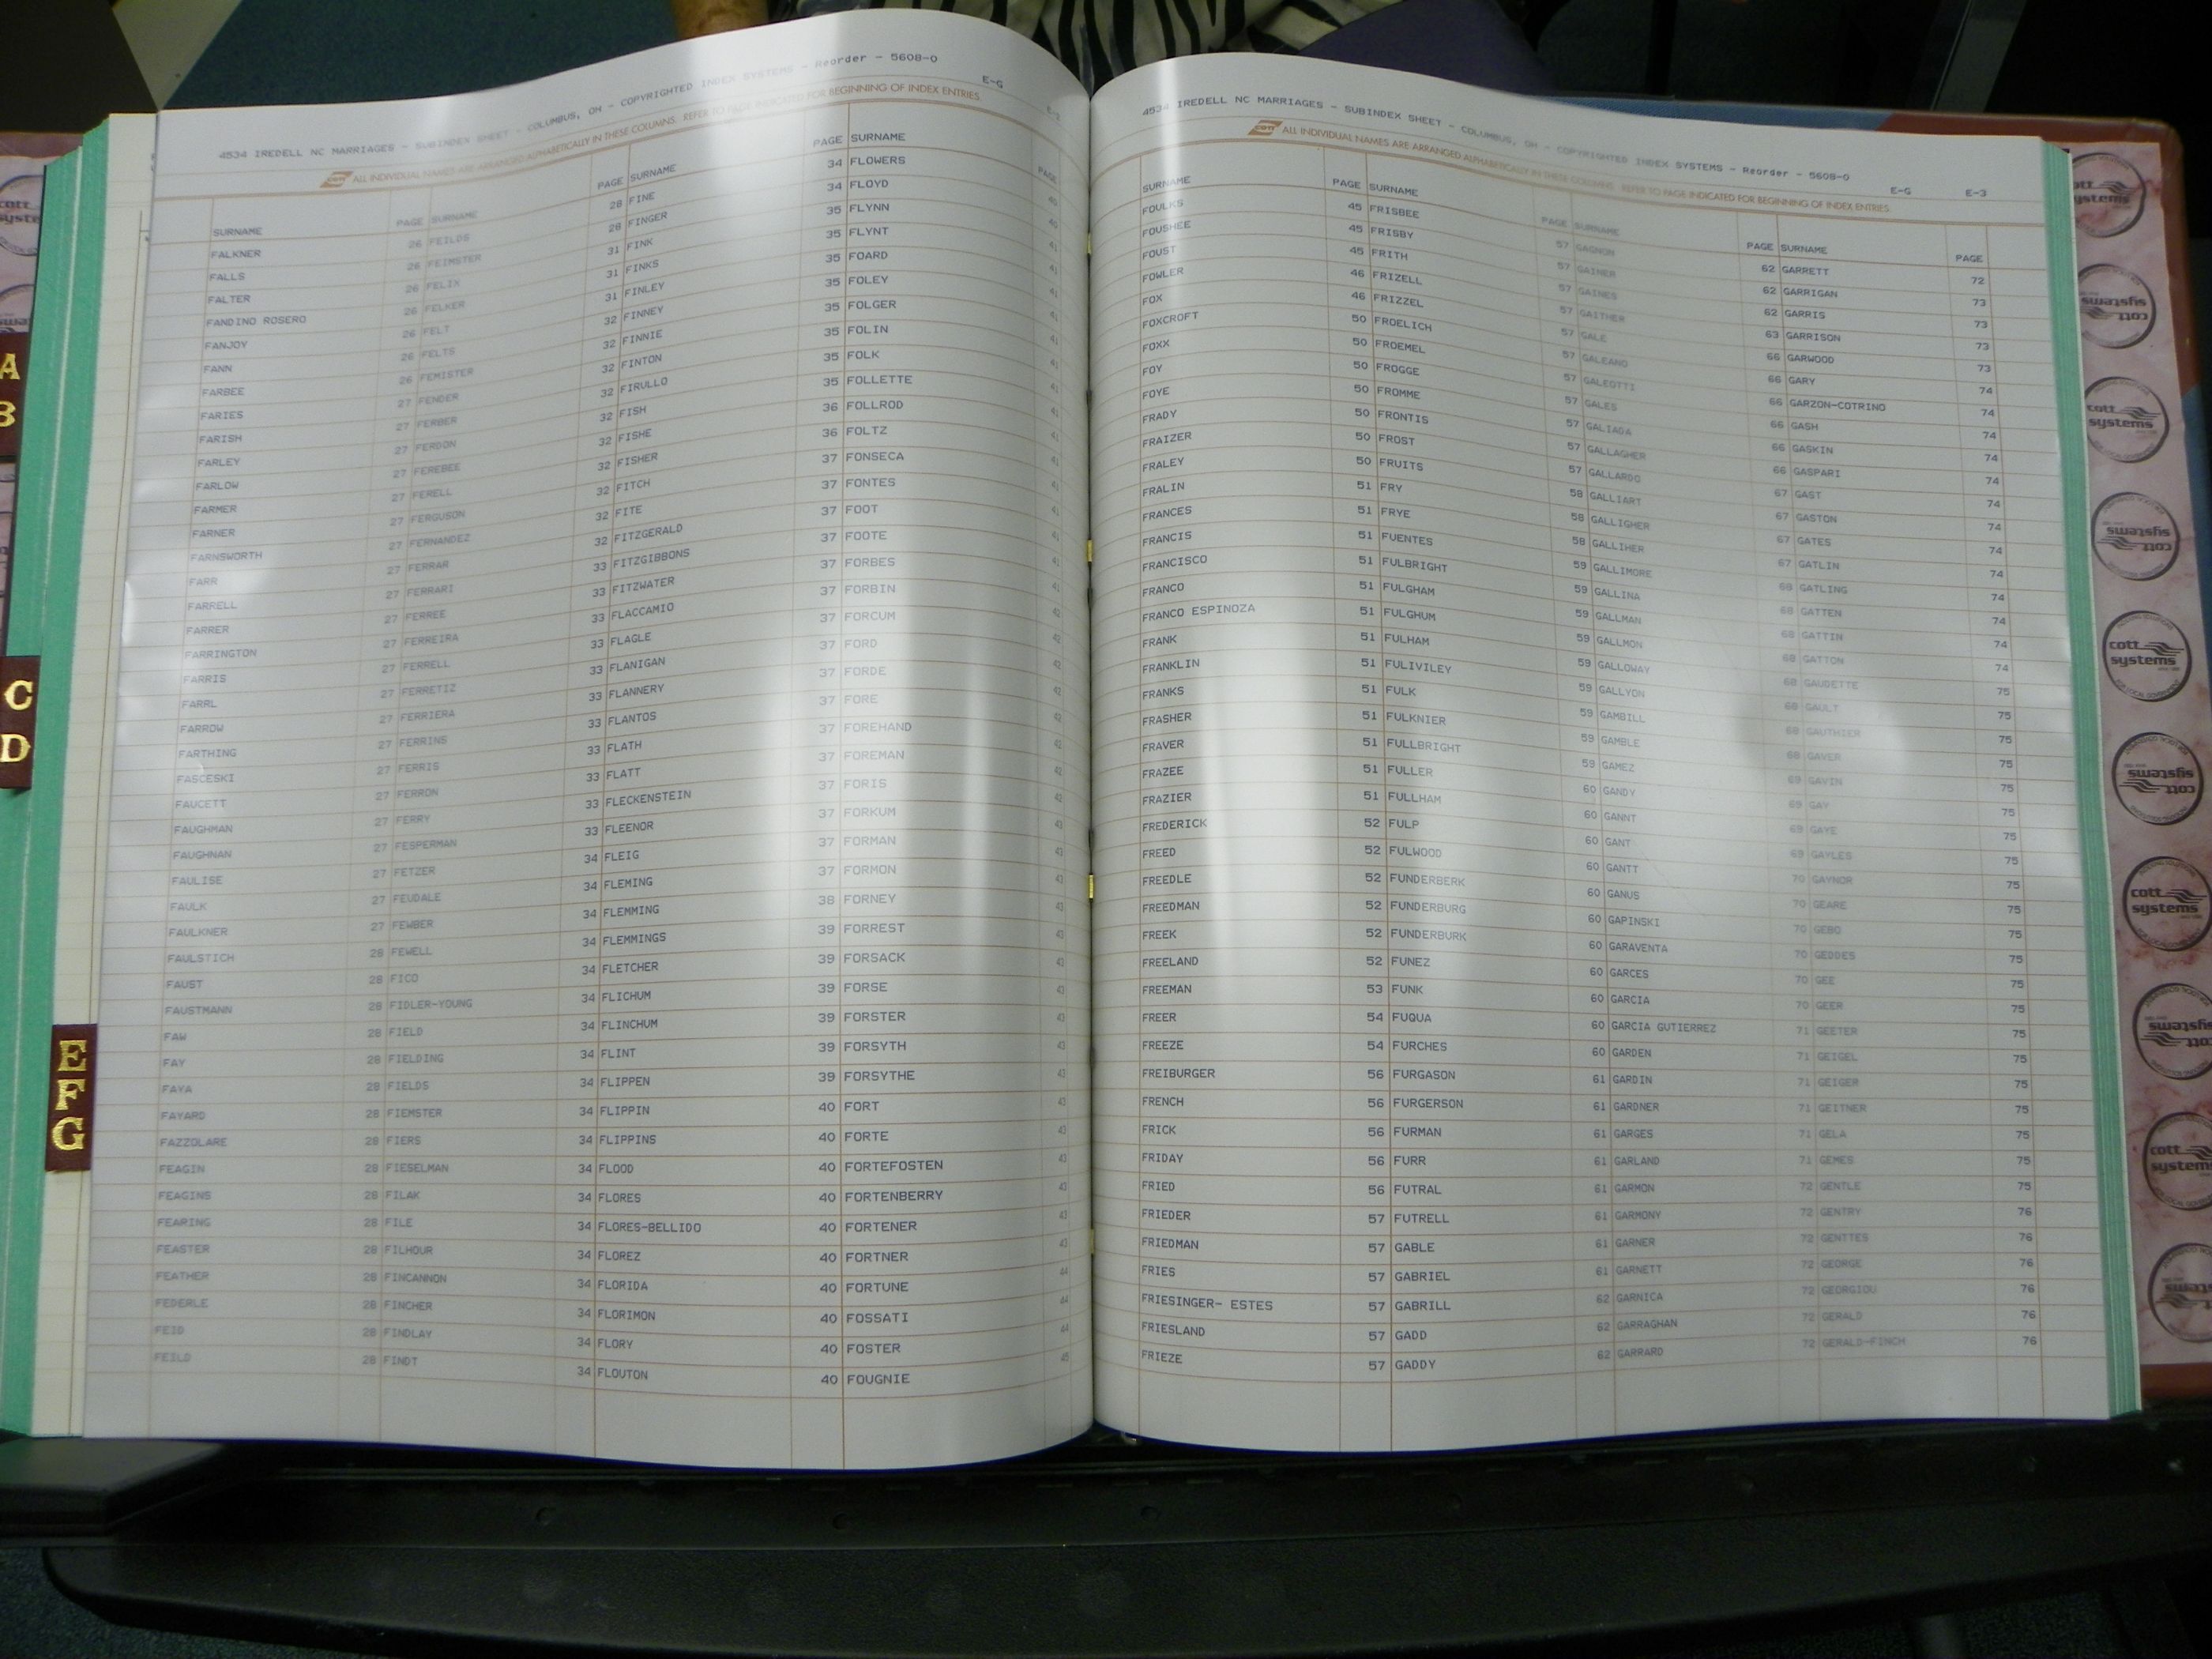 4534 IREDELL NC MARRIAGES - SUBINDEX SHEET - COLUMBUS, OH - COPYRIGHTED INDEX SYSTEMS - Reorder - 5608-O
E-G
cott ALL INDIVIDUAL NAMES ARE ARRANGED ALPHABETICALLY IN THESE COLUMNS. REFER TO PAGE INDICATED FOR BEGINNING OF INDEX ENTRIES
SURNAME PAGE
FALKNER 26
FALLS 26
FALTER 26
FANDINO ROSERO 26
FANJOY 26
FANN 26
FARBEE 26
FARIES 27
FARISH 27
FARLEY 27
FARLOW 27
FARMER 27
FARNER 27
FARNSWORTH 27
FARR 27
FARRELL 27
FARRER 27
FARRINGTON 27
FARRIS 27
FARRL 27
FARROW 27
FARTHING 27
FASCESKI 27
FAUCETT 27
FAUGHMAN 27
FAUGHNAN 27
FAULISE 27
FAULK 27
FAULKNER 27
FAULSTICH 28
FAUST 28
FAUSTMANN 28
FAW 28
FAY 28
FAYA 28
FAYARD 28
FAZZOLARE 28
FEAGIN 28
FEAGINS 28
FEARING 28
FEASTER 28
FEATHER 28
FEDERLE 28
FEID 28
FEILD 28
SURNAME PAGE
FEILDS 28
FEIMSTER 28
FELIX 31
FELKER 31
FELT 31
FELTS 32
FEMISTER 32
FENDER 32
FERBER 32
FERDON 32
FEREBEE 32
FERELL 32
FERGUSON 32
FERNANDEZ 32
FERRAR 32
FERRARI 33
FERREE 33
FERREIRA 33
FERRELL 33
FERRETIZ 33
FERRIERA 33
FERRINS 33
FERRIS 33
FERRON 33
FERRY 33
FESPERMAN 33
FETZER 34
FEUDALE 34
FEWBER 34
FEWELL 34
FICO 34
FIDLER-YOUNG 34
FIELD 34
FIELDING 34
FIELDS 34
FIEMSTER 34
FIERS 34
FIESELMAN 34
FILAK 34
FILE 34
FILHOUR 34
FINCANNON 34
FINCHER 34
FINDLAY 34
FINDT 34
SURNAME PAGE
FINE 34
FINGER 34
FINK 35
FINKS 35
FINLEY 35
FINNEY 35
FINNIE 35
FINTON 35
FIRULLO 35
FISH 35
FISHE 36
FISHER 36
FITCH 37
FITE 37
FITZGERALD 37
FITZGIBBONS 37
FITZWATER 37
FLACCAMIO 37
FLAGLE 37
FLANIGAN 37
FLANNERY 37
FLANTOS 37
FLATH 37
FLATT 37
FLECKENSTEIN 37
FLEENOR 37
FLEIG 37
FLEMING 37
FLEMMING 38
FLEMMINGS 39
FLETCHER 39
FLICHUM 39
FLINCHUM 39
FLINT 39
FLIPPEN 39
FLIPPIN 40
FLIPPINS 40
FLOOD 40
FLORES 40
FLORES-BELLIDO 40
FLOREZ 40
FLORIDA 40
FLORIMON 40
FLORY 40
FLOUTON 40
SURNAME PAGE
FLOWERS
FLOYD
FLYNN
FLYNT
FOARD
FOLEY
FOLGER
FOLIN
FOLK
FOLLETTE
FOLLROD
FOLTZ
FONSECA
FONTES
FOOT
FOOTE
FORBES
FORBIN
FORCUM
FORD
FORDE
FORE
FOREHAND
FOREMAN
FORIS
FORKUM
FORMAN
FORMON
FORNEY
FORREST
FORSACK
FORSE
FORSTER
FORSYTH
FORSYTHE
FORT
FORTE
FORTEFOSTEN
FORTENBERRY
FORTENER
FORTNER
FORTUNE
FOSSATI
FOSTER
FOUGNIE
4534 IREDELL NC MARRIAGES - SUBINDEX SHEET - COLUMBUS, OH - COPYRIGHTED INDEX SYSTEMS - Reorder - 5608-O
E-G E-3
cott ALL INDIVIDUAL NAMES ARE ARRANGED ALPHABETICALLY IN THESE COLUMNS. REFER TO PAGE INDICATED FOR BEGINNING OF INDEX ENTRIES
SURNAME PAGE
FOULKS 45
FOUSHEE 45
FOUST 45
FOWLER 46
FOX 46
FOXCROFT 50
FOXX 50
FOY 50
FOYE 50
FRADY 50
FRAIZER 50
FRALEY 50
FRALIN 51
FRANCES 51
FRANCIS 51
FRANCISCO 51
FRANCO 51
FRANCO ESPINOZA 51
FRANK 51
FRANKLIN 51
FRANKS 51
FRASHER 51
FRAVER 51
FRAZEE 51
FRAZIER 51
FREDERICK 52
FREED 52
FREEDLE 52
FREEDMAN 52
FREEK 52
FREELAND 52
FREEMAN 53
FREER 54
FREEZE 54
FREIBURGER 56
FRENCH 56
FRICK 56
FRIDAY 56
FRIED 56
FRIEDER 57
FRIEDMAN 57
FRIES 57
FRIESINGER- ESTES 57
FRIESLAND 57
FRIEZE 57
SURNAME PAGE
FRISBEE 57
FRISBY 57
FRITH 57
FRIZELL 57
FRIZZEL 57
FROELICH 57
FROEMEL 57
FROGGE 57
FROMME 57
FRONTIS 57
FROST 58
FRUITS 58
FRY 58
FRYE 59
FUENTES 59
FULBRIGHT 59
FULGHAM 59
FULGHUM 59
FULHAM 59
FULIVILEY 59
FULK 59
FULKNIER 59
FULLBRIGHT 60
FULLER 60
FULLHAM 60
FULP 60
FULWOOD 60
FUNDERBERK 60
FUNDERBURG 60
FUNDERBURK 60
FUNEZ 60
FUNK 60
FUQUA 60
FURCHES 61
FURGASON 61
FURGERSON 61
FURMAN 61
FURR 61
FUTRAL 61
FUTRELL 61
GABLE 61
GABRIEL 62
GABRILL 62
GADD 62
GADDY
SURNAME PAGE
GAGNON 62
GAINER 62
GAINES 62
GAITHER 63
GALE 66
GALEANO 66
GALEOTTI 66
GALES 66
GALIADA 66
GALLAGHER 66
GALLARDO 67
GALLIART 67
GALLIGHER 67
GALLIHER 67
GALLIMORE 68
GALLINA 68
GALLMAN 68
GALLMON 68
GALLOWAY 68
GALLYON 68
GAMBILL 68
GAMBLE 68
GAMEZ 69
GANDY 69
GANNT 69
GANT 69
GANTT 70
GANUS 70
GAPINSKI 70
GARAVENTA 70
GARCES 70
GARCIA 70
GARCIA GUTIERREZ 71
GARDEN 71
GARDIN 71
GARDNER 71
GARGES 71
GARLAND 71
GARMON 72
GARMONY 72
GARNER 72
GARNETT 72
GARNICA 72
GARRAGHAN 72
GARRARD 72
SURNAME PAGE
GARRETT 72
GARRIGAN 73
GARRIS 73
GARRISON 73
GARWOOD 73
GARY 74
GARZON-COTRINO 74
GASH 74
GASKIN 74
GASPARI 74
GAST 74
GASTON 74
GATES 74
GATLIN 74
GATLING 74
GATTEN 74
GATTIN 74
GATTON 74
GAUDETTE 75
GAULT 75
GAUTHIER 75
GAVER 75
GAVIN 75
GAY 75
GAYE 75
GAYLES 75
GAYNOR 75
GEARE 75
GEBO 75
GEDDES 75
GEE 75
GEER 75
GEETER 75
GEIGEL 75
GEIGER 75
GEITNER 75
GELA 75
GEMES 75
GENTLE 75
GENTRY 76
GENTTES 76
GEORGE 76
GEORGIOU 76
GERALD 76
GERALD-FINCH 76
A
B
C
D
E
F
G
cott
systems
cott
systems
cott
systems
cott
systems
cott
systems
cott
systems
cott
systems